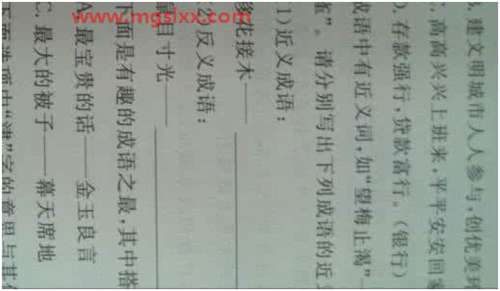 www.mgslxx.com
建文明城市人人参与,创优美环
高高兴兴上班来,平平安安回家
存款强行,贷款富行。(银行)
成语中有近义词,如“望梅止渴”—
”。请分别写出下列成语的近
1)近义成语:
移花接木——
2)反义成语:
目寸光——
下面是有趣的成语之最,其中搭
A. 最宝贵的话——金玉良言
C. 最大的被子——幕天席地